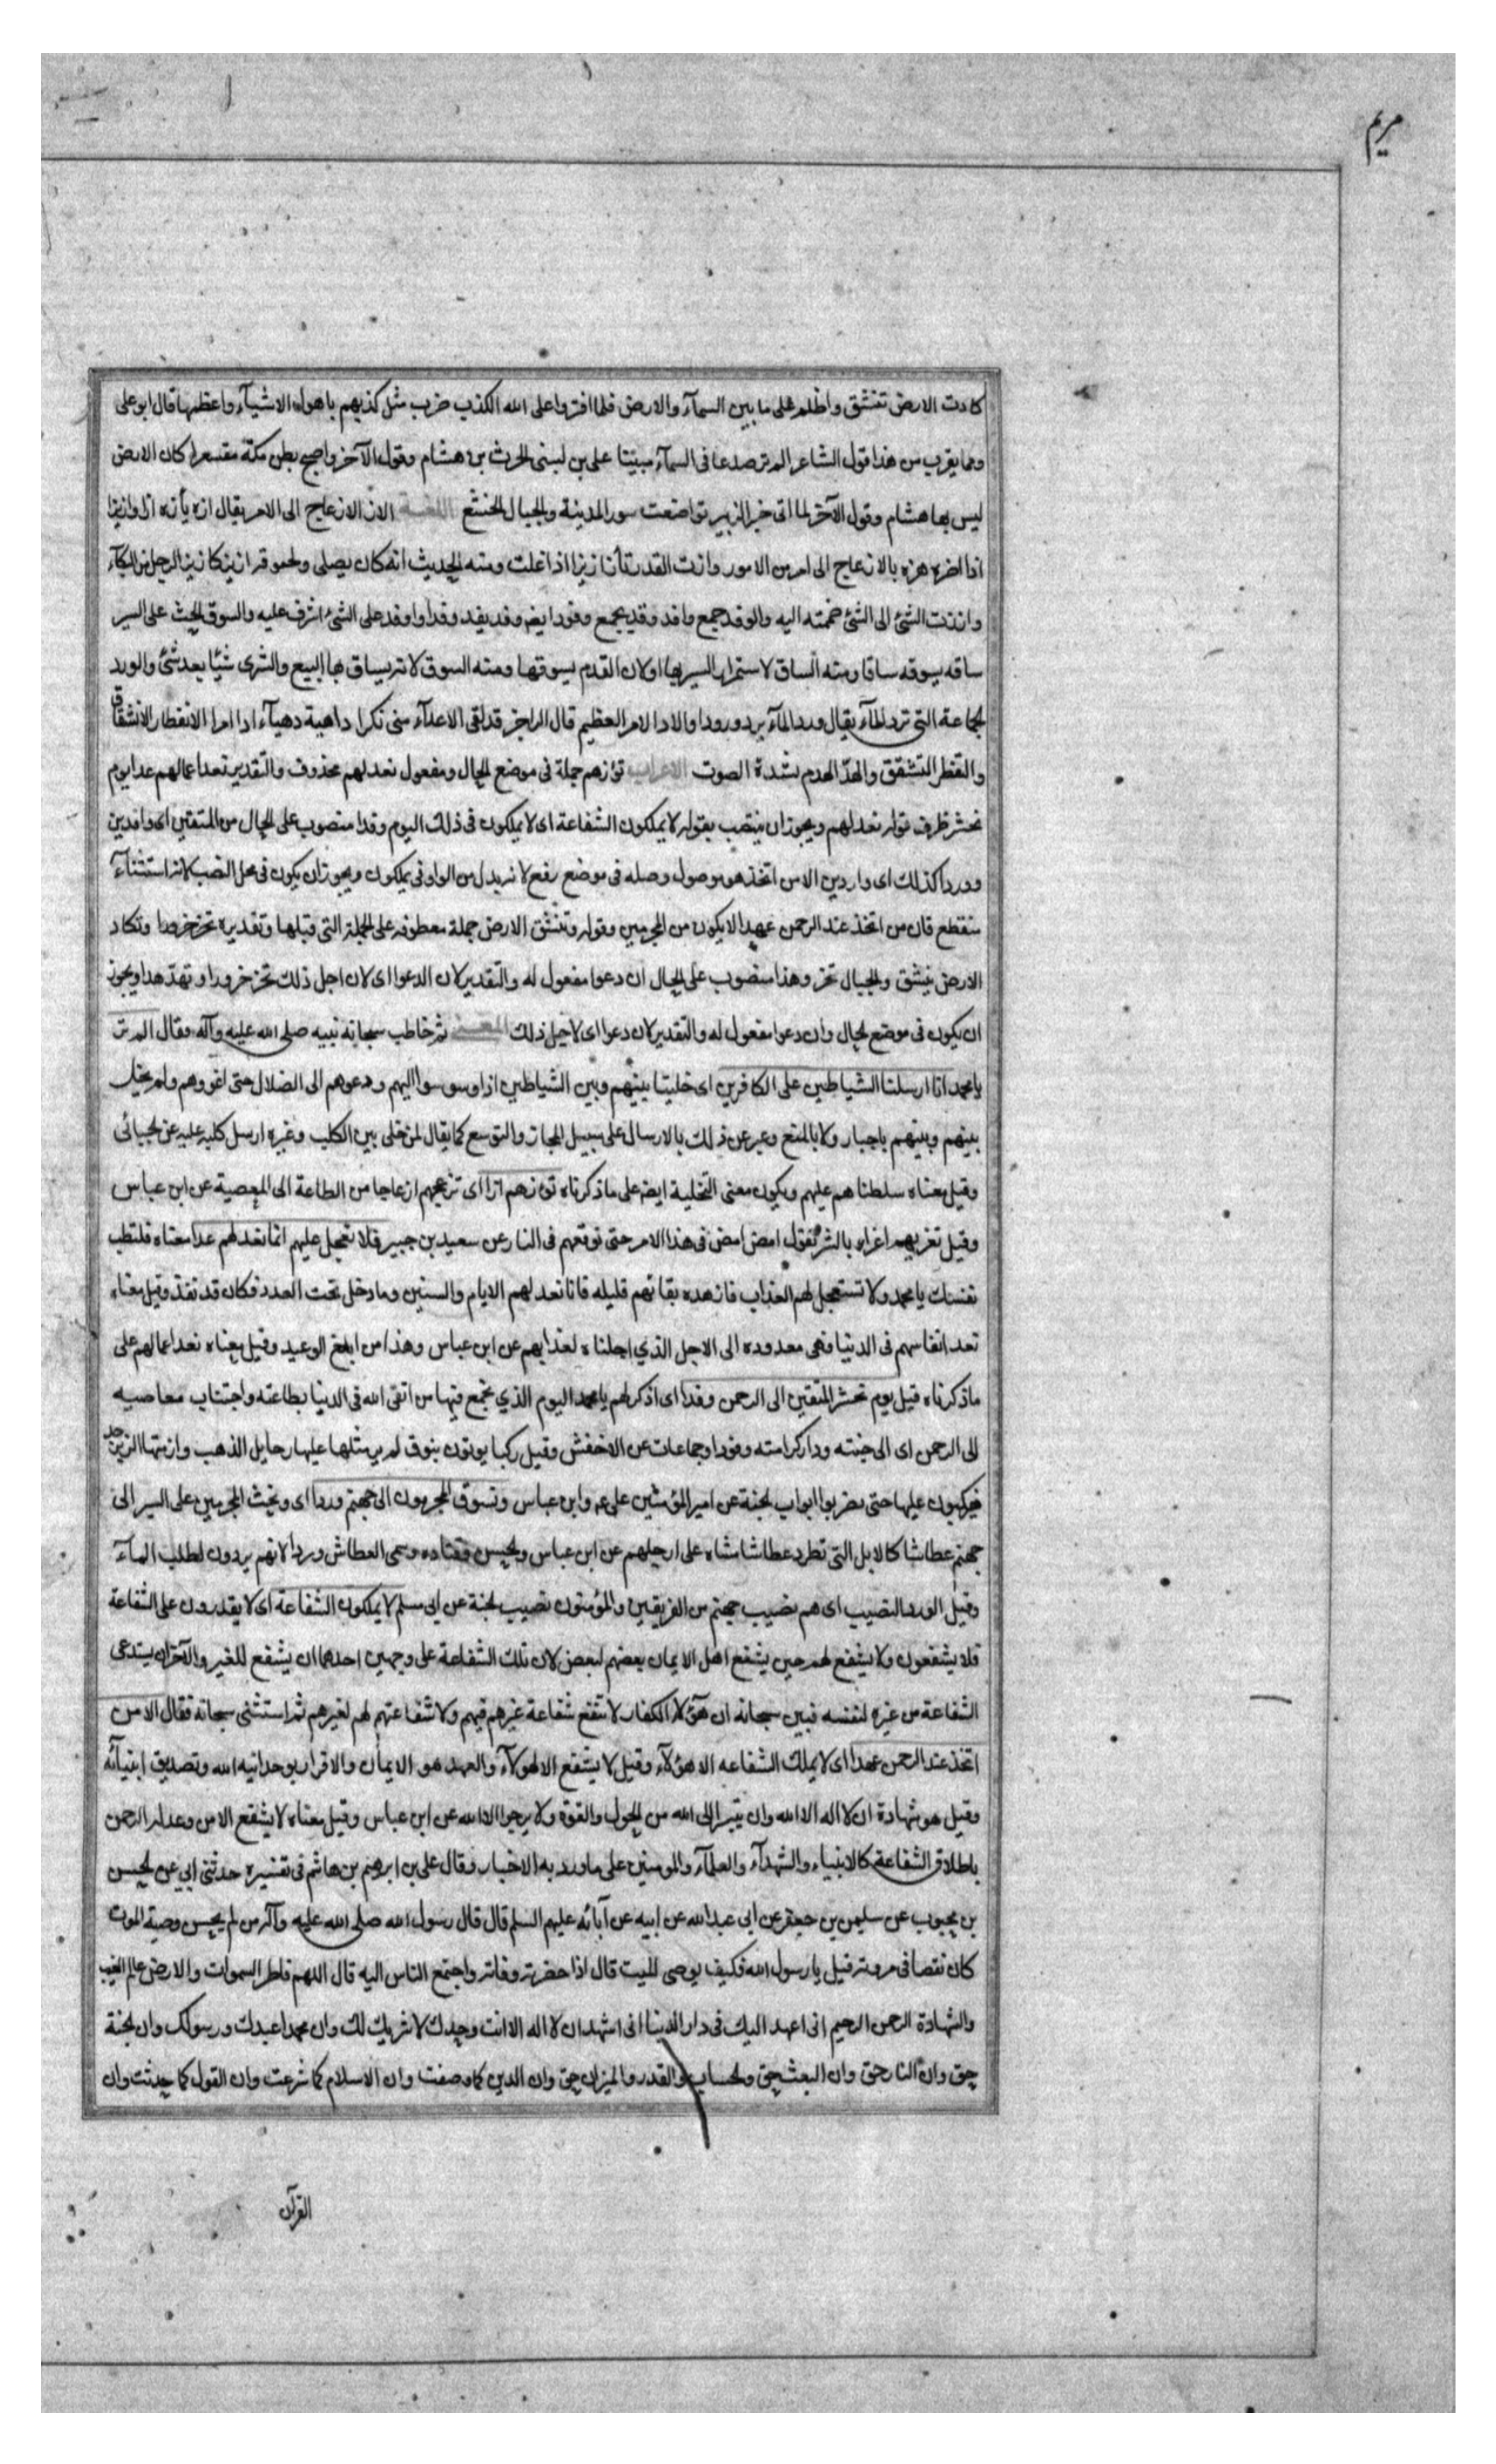 مريم
كادت الارض تنشق واظلم على ما بين السمآء والارض فلما افتروا على الله الكذب ضرب مثل كذبهم باهول الاشيآء واعظمها قال ابو على
ومما يقرب من هذا قول الشاعر الم تر صدعا فى السمآء مبينا على بن لبينى الحرث بن هشام وقول الآخر واصبح بطن مكة مقشعرا كان الارض
ليس بها هشام وقول الآخر لما اتى خبر الزبير تواضعت سور المدينة والجبال الخشع اللغة الاز الازعاج الى الامر يقال ازه يأزه ازا وازيزا
اذا هزه بالازعاج الى امر من الامور وازت القدر تأز ازيزا اذا غلت ومنه الحديث انه كان يصلى ولجوفه ازيز كازيز المرجل من البكآء
واززت الشئ الى الشئ ضممته اليه والوفد جمع وافد وقد يجمع وفودا ايضا وفد يفد وفدا واوفد على الشئ اشرف عليه والسوق الحث على السير
ساقه يسوقه ساقا ومنه الساق لاستمرار السير بها او لان القدم يسوقها ومنه السوق لانه يساق بها البيع والشرى شيئا بعد شئ والورد
الجماعة التى ترد المآء يقال ورد المآء يرد ورودا والاد الامر العظيم قال الراجز قد لقى الاعدآء منى نكرا داهية دهيآء ادا امرا الانفطار الانشقاق
والتفطر التشقق والهدّ الهدم بشدة الصوت الاعراب تؤزهم جملة فى موضع الحال ومفعول نعد لهم محذوف والتقدير نعد اعمالهم عدا يوم
نحشر ظرف قوله نعد لهم ويجوز ان ينتصب بقوله لا يملكون الشفاعة اى لا يملكون فى ذلك اليوم وفدا منصوب على الحال من المتقين اى وافدين
ووردا كذلك اى واردين الا من اتخذ هو موصول وصله فى موضع رفع لانه بدل من الواو فى يملكون ويجوز ان يكون فى محل النصب لانه استثنآء
منقطع فان من اتخذ عند الرحمن عهدا لا يكون من المجرمين وقوله وتنشق الارض جملة معطوفه على الجملة التى قبلها وتقديره تخر خرورا وتكاد
الارض ينشق والجبال تخر وهذا منصوب على الحال ان دعوا مفعول له والتقدير لان الدعوا اى لان اجل ذلك تخر خرورا وتهدّ هدا ويجوز
ان يكون فى موضع الحال وان دعوا مفعول له والتقدير لان دعوا اى لاجل ذلك المعنى ثم خاطب سبحانه نبيه صلى الله عليه وآله وقال الم تر
يا محمد انا ارسلنا الشياطين على الكافرين اى خلينا بينهم وبين الشياطين اذا وسوسوا اليهم ودعوهم الى الضلال حتى اغووهم ولم يحل
بينهم وبينهم باجبار ولا بالمنع وعبر عن ذلك بالارسال على سبيل المجاز والتوسع كما يقال لمن خلى بين الكلب وغيره ارسل كلبه عليه عن الجبائى
وقيل معناه سلطناهم عليهم ويكون معنى التخلية ايضا على ما ذكرناه تؤزهم ازا اى تزعجهم ازعاجا من الطاعة الى المعصية عن ابن عباس
وقيل تغريهم اغراء بالشر تقول امض امض فى هذا الامر حتى توقعهم فى النار عن سعيد بن جبير فلا تعجل عليهم انما نعد لهم عدا معناه فلتطب
نفسك يا محمد ولا تستعجل لهم العذاب فان مدة بقائهم قليله فانا نعد لهم الايام والسنين وما دخل تحت العدد فكان قد نفد وقيل معناه
نعد انفاسهم فى الدنيا فهى معدوده الى الاجل الذي اجلناه لعذابهم عن ابن عباس وهذا من ابلغ الوعيد وقيل معناه نعد اعمالهم على
ما ذكرناه قيل يوم نحشر المتقين الى الرحمن وفدا اى اذكر لهم يا محمد اليوم الذي نجمع فيها من اتقى الله فى الدنيا بطاعته واجتناب معاصيه
الى الرحمن اى الى جنته ودار كرامته وفودا وجماعات عن الاخفش وقيل ركبا يوتون بنوق لم ير مثلها عليها رحايل الذهب وازمتها الزبرجد
فيركبون عليها حتى يضربوا ابواب الجنة عن امير المؤمنين على ع وابن عباس ونسوق المجرمون الى جهنم وردا اى ونحث المجرمين على السير الى
جهنم عطاشا كالابل التى تطرد عطاشا مشاه على ارجلهم عن ابن عباس والحسن وقتاده وسمى العطاش وردا لانهم يردون لطلب المآء
وقيل الورد النصيب اى هم نصيب جهنم من الفريقين والمؤمنون نصيب الجنة عن ابى مسلم لا يملكون الشفاعة اى لا يقدرون على الشفاعة
فلا يشفعون ولا يشفع لهم حين يشفع اهل الايمان بعضهم لبعض لان تلك الشفاعة على وجهين احدهما ان يشفع للغير والآخر ان يستدعى
الشفاعة من غيره لنفسه فبين سبحانه ان هؤلآء الكفار لا تنفع شفاعة غيرهم فيهم ولا شفاعتهم لهم لغيرهم ثم استثنى سبحانه فقال الا من
اتخذ عند الرحمن عهدا اى لا يملك الشفاعه الا هؤلآء وقيل لا يشفع الا لهولآء والعهد هو الايمان والاقرار بوحدانيه الله وتصديق انبيآئه
وقيل هو شهادة ان لا اله الا الله وان يتبرا الى الله من الحول والقوة ولا يرجوا الا الله عن ابن عباس وقيل معناه لا يشفع الا من وعد له الرحمن
باطلاق الشفاعة كالانبياء والشهدآء والعلمآء والمومنين على ما ورد به الاخبار وقال على بن ابرهيم بن هاشم فى تفسيره حدثنى ابى عن الحسن
بن محبوب عن سليمن بن جعفر عن ابى عبدالله عن ابيه عن آبائه عليهم السلم قال قال رسول الله صلى الله عليه وآله من لم يحسن وصية الموت
كان نقصا فى مروته قيل يا رسول الله فكيف يوصى الميت قال اذا حضرته وفاته واجتمع الناس اليه قال اللهم فاطر السموات والارض عالم الغيب
والشهادة الرحمن الرحيم انى اعهد اليك فى دار الدنيا انى اشهد ان لا اله الا انت وحدك لا شريك لك وان محمدا عبدك ورسولك وان الجنة
حق وان النار حق وان البعث حق والحساب والقدر والميزان حق وان الدين كما وصفت وان الاسلام كما شرعت وان القول كما حدثت وان
القرآن